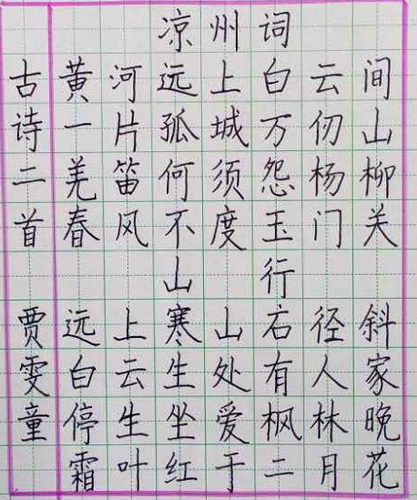 古诗二首
贾雯童
凉州词
黄河远上白云间
一片孤城万仞山
羌笛何须怨杨柳
春风不度玉门关
山行
远上寒山石径斜
白云生处有人家
停生坐爱枫林晚
霜叶红于二月花